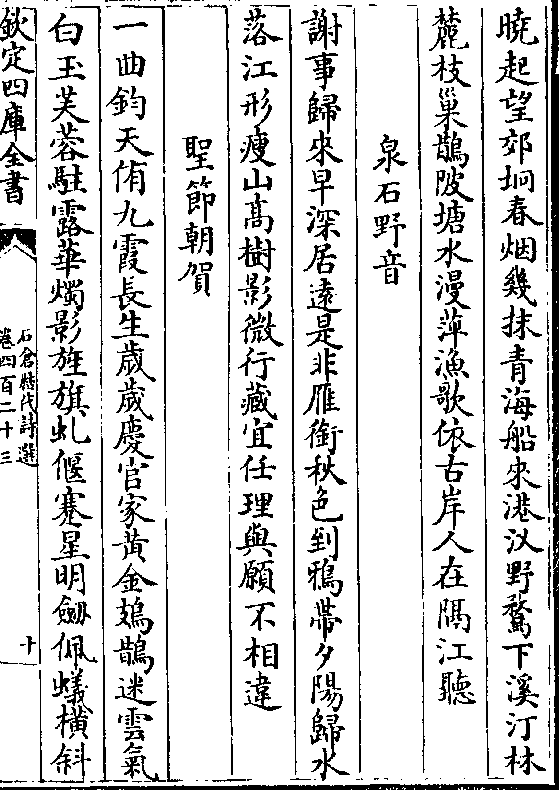 曉起望郊坰春烟幾抹青海船來港汊野鶩下溪汀林
麓枝巢鵲陂塘水漫萍漁歌依古岸人在隔江聽
泉石野音
謝事歸來早深居遠是非雁銜秋色到鴉帶夕陽歸水
落江形瘦山高樹影微行藏宜任理與願不相違
聖節朝賀
一曲鈞天侑九霞長生歲歲慶官家黃金鳷鵲迷雲氣
白玉芙蓉駐露華燭影旌旗虬偃蹇星明劍佩蟻橫斜
欽定四庫全書
石倉歷代詩選
卷四百二十三
十